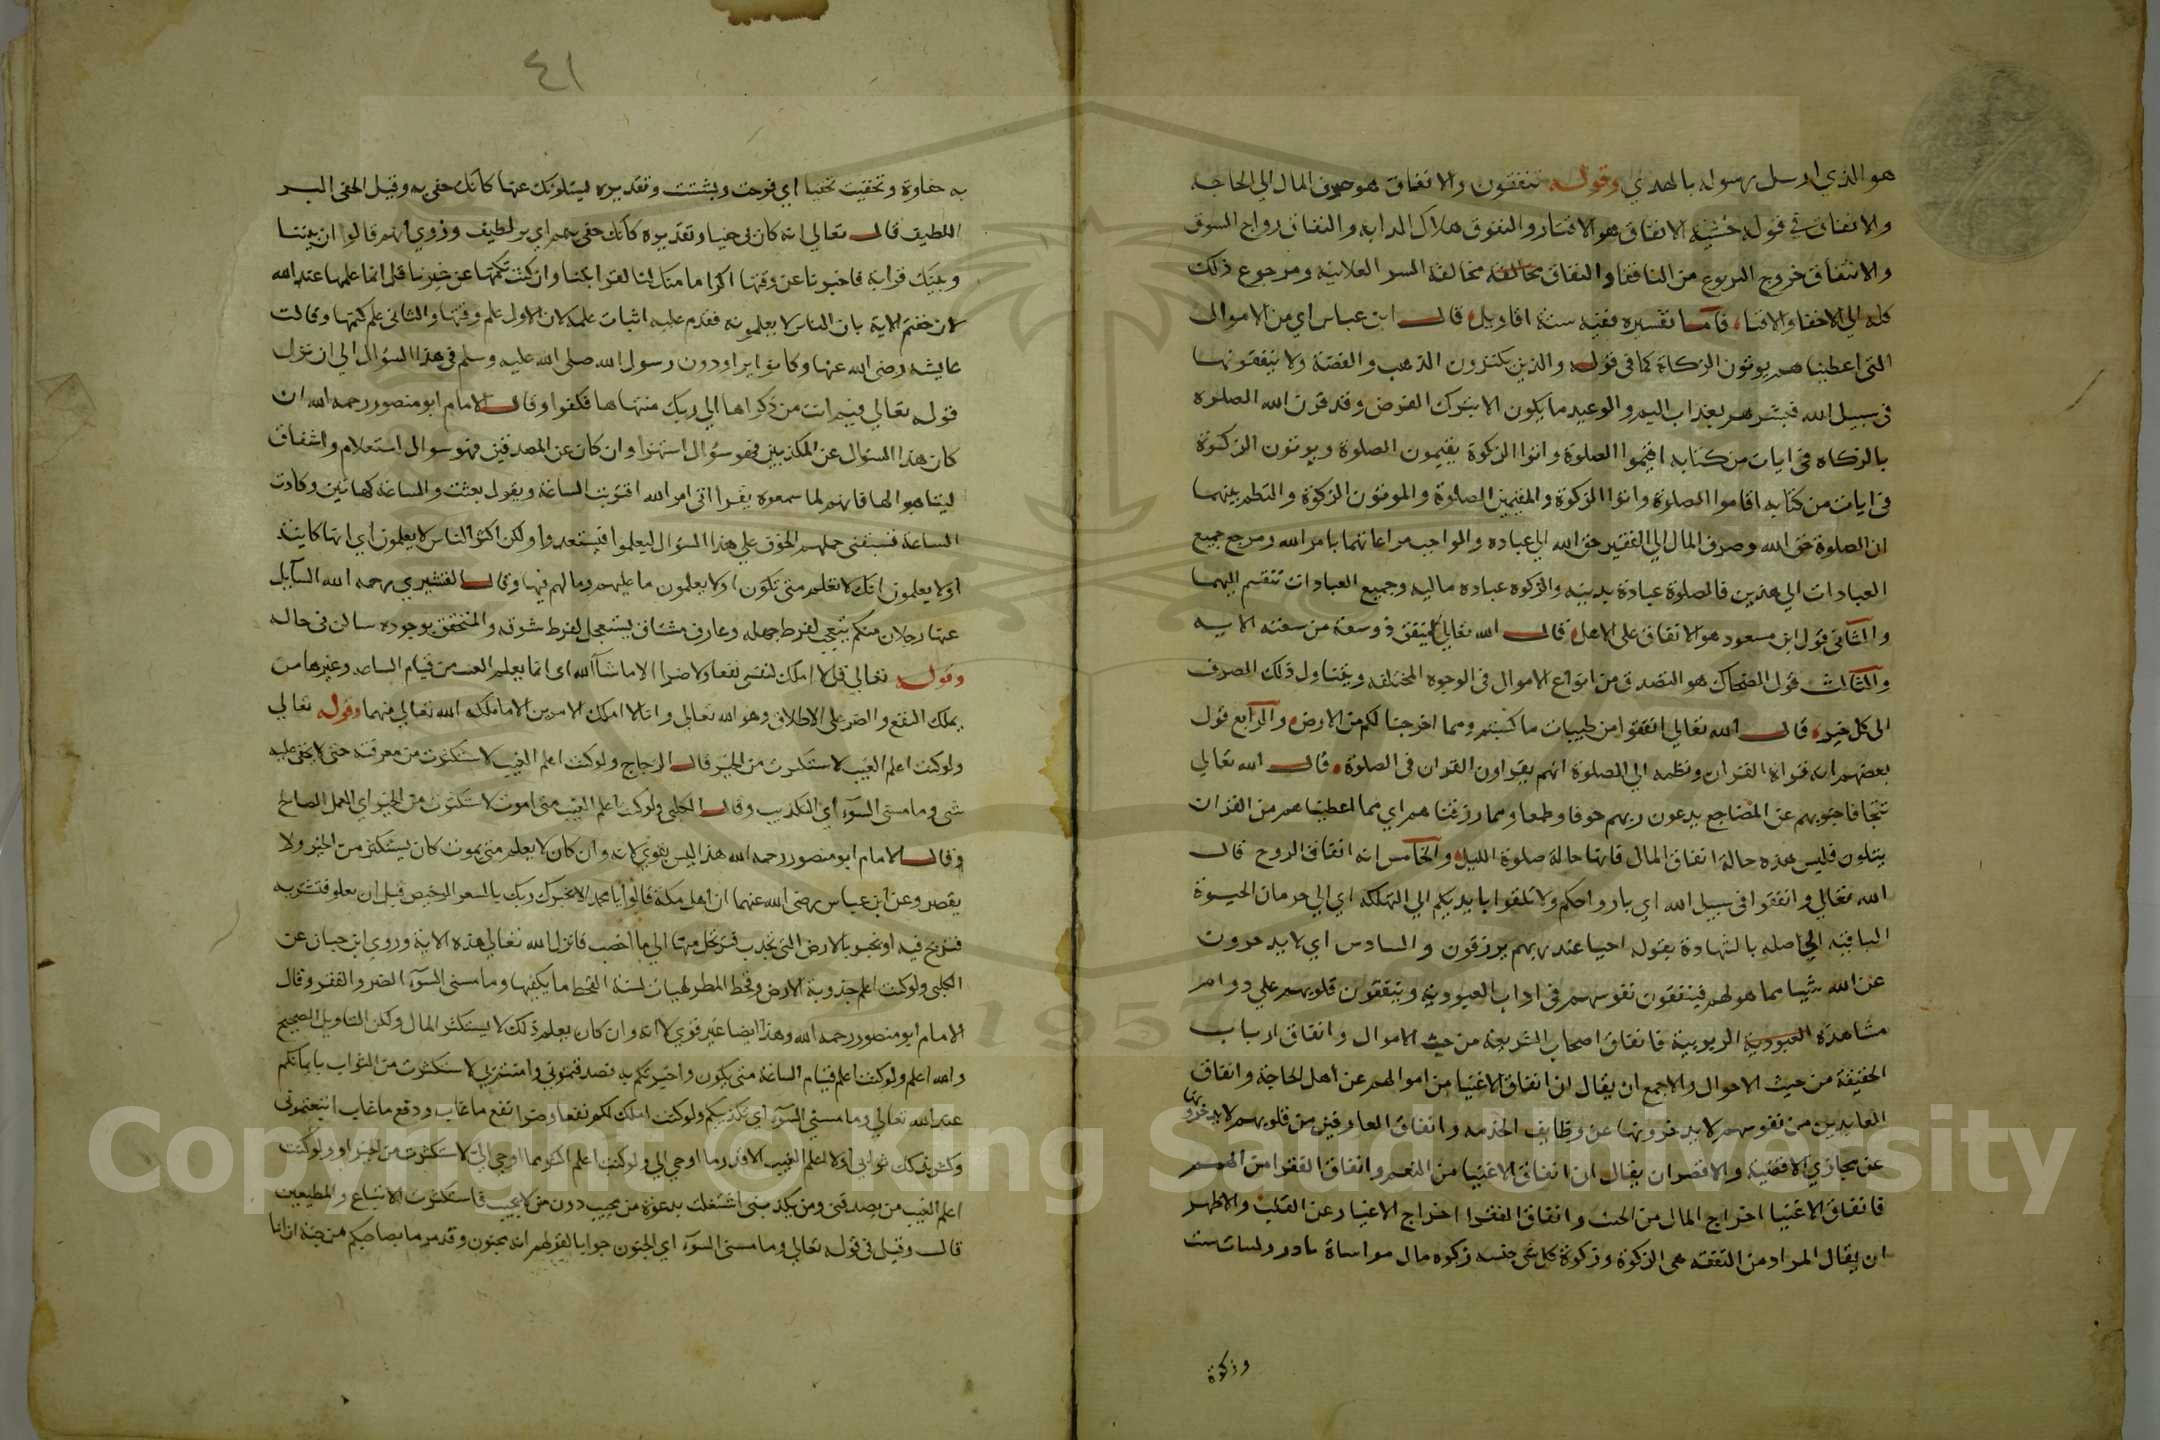 هو الذي ارسل رسوله بالهدي وقوله ينفقون والانفاق هو صرف المال الي الحاجة
والانفاق في قوله خشية الانفاق هو الاقتار والنفوق هلاك الدابة والنفاق رواج السوق
والانتفاق خروج اليربوع من النافقا والنفاق مخالفة السر العلانية ومرجوع ذلك
كله الي الاخفا والافنا فاما تفسيره ففيه ستة اقاويل قال ابن عباس اي من الاموال
التي اعطيناهم يوتون الزكاة كما في قوله والذين يكنزون الذهب والفضة ولا ينفقونها
في سبيل الله فبشرهم بعذاب اليم والوعيد ما يكون الا بترك الفرض وقد قرن الله الصلوة
بالزكاه في ايات من كتابه اقيموا الصلوة واتوا الزكوة يقيمون الصلوة ويوتون الزكوة
في ايات من كتابه اقاموا الصلوة واتوا الزكوة والمقيمين الصلوة والموتون الزكوة والنظم بينهما
ان الصلوة حق الله وصرف المال الي الفقير حق الله الي عباده والواجب مراعاتهما بامر الله ومرجع جميع
العبادات الي هذين فالصلوة عبادة بدنية والزكوه عباده ماليه وجميع العبادات تنقسم اليهما
والثاني قول ابن مسعود هو الانفاق علي الاهل قال الله تعالي لينفق ذو سعة من سعته الاية
والثالث قول الضحاك هو التصدق من انواع الاموال في الوجوه المختلفه ويتناول ذلك الصرف
الى كل خير قال الله تعالي انفقوا من طيبات ما كسبتم ومما اخرجنا لكم من الارض والرابع قول
بعضهم انه قراة القران ونظمه الي الصلوة انهم يقراون القران في الصلوة قال الله تعالي
تتجافا جنوبهم عن المضاجع يدعون ربهم خوفا وطمعا ومما رزقناهم اي مما اعطيناهم من القران
يتلون فليس هذه حالة انفاق المال فانها حالة صلوة الليل والخامس انه انفاق الروح قال
الله تعالي وانفقوا في سبيل الله اي بارواحكم ولا تلقوا بايديكم الي التهلكه اي الي حرمان الحيوة
الباقيه الحاصله بالشهادة بقوله احيا عند ربهم يرزقون والسادس اي لا يدخرون
عن الله شيا مما هو لهم فينفقون نفوسهم في اداب العبودية وينفقون قلوبهم علي دوام
مشاهدة العبودية الربوبية فانفاق اصحاب الشريعة من حيث الاموال وانفاق ارباب
الحقيقة من حيث الاحوال والاجمع ان يقال ان انفاق الاغنيا من اموالهم عن اهل الحاجة وانفاق
العابدين من نفوسهم لا يدخرونها عن وظايف الخدمه وانفاق العارفين من قلوبهم لا يدخرونها
عن مجاري الاقضية والاقصر ان يقال ان انفاق الاغنيا من النعم وانفاق الفقرا من الهمم
فانفاق الاغنيا اخراج المال من وانفاق الفقرا اخراج الاغيار عن القلب والاظهر
ان يقال المراد من النفقه هي الزكوة وزكوة كل شي جنسه زكوه مال مواساة
وزكوة
٤١
به حفاوة وتحفيت تحفيا اي فرحت وبششت وتقديره يسئلونك عنها كانك حفي به وقيل الحفي البر
اللطيف قال تعالي انه كان بي حفيا وتقديره كانك حفي بهم اي بر لطيف وروي انهم قالوا ان بيننا
وبينك قرابة فاخبرنا عن وقتها اكراما منك لنا لقرابتنا وان كنت تكتمها عن غيرنا قل انما علمها عند الله
لان ختم الاية بان الناس لا يعلمونه فقدم عليه اثبات علمه لان الاول علم وقتها والثاني علم كنهها وقالت
عايشه رضي الله عنها وكانوا يراودون رسول الله صلي الله عليه وسلم في هذا السؤال الي ان نزل
قوله تعالي فيم انت من ذكراها الي ربك منتهاها فكفوا وقال الامام ابو منصور رحمه الله ان
كان هذا السؤال عن المكذبين فهو سؤال استهزا وان كان عن المصدقين فهو سوال استعلام واشفاق
ليتاهبوا لها فانهم لما سمعوه يقرا اتي امر الله اقتربت الساعة ويقول بعثت والساعة كهاتين وكادت
الساعة فسبقني حملهم الخوف علي هذا السؤال ليعلموا فيستعدوا ولكن اكثر الناس لا يعلمون اي انها كاينة
اولا يعلمون انك لا تعلم متي تكون اولا يعلمون ما عليهم وما لهم فيها وقال القشيري رحمه الله السايل
عنها رجلان منكر يتعجب لفرط جهله وعارف مشتاق يستعجل لفرط شوقه والمتحقق بوجوده ساكن في حاله
وقوله تعالي قل لا املك لنفسي نفعا ولا ضرا الا ما شا الله اي انما يعلم الغيب من قيام الساعه وغيرها من
يملك النفع والضر علي الاطلاق وهو الله تعالي وانا لا املك الامرين الا ما ملكه الله تعالي منهما وقوله تعالي
ولو كنت اعلم الغيب لاستكثرت من الخير قال الزجاج ولو كنت اعلم الغيب لاستكثرت من معرفته حتي لا يخفي عليه
شي وما مسني السوء اي التكذيب وقال الكلبي ولو كنت اعلم الغيب متي اموت لاستكثرت من الخير اي العمل الصالح
وقال الامام ابو منصور رحمه الله هذا ليس بقوي لانه وان كان لا يعلم متي يموت كان يستكثر من الخير ولا
يقصر وعن ابن عباس رضي الله عنهما ان اهل مكة قالوا يا محمد الا يخبرك ربك بالسعر الرخيص قبل ان يغلو فتشتريه
فتربح فيه او تخبر بالارض التي تجدب فترتحل منها الي ما اخصب فانزل الله تعالي هذه الاية وروي ابن حبان عن
الكلبي ولو كنت اعلم جذوبة الارض وقحط المطر لهيات لسنة القحط ما يكفيها وما مسني السوء الضر والفقر وقال
الامام ابو منصور رحمه الله وهذا ايضا غير قوي لانه وان كان يعلم ذلك لا يستكثر المال ولكن التاويل الصحيح
والله اعلم ولو كنت اعلم قيام الساعة متي يكون واخبرتكم به فصدقتموني وامنتم بي لاستكثرت من الثواب بايمانكم
عند الله تعالي وما مسني السوء اي تكذيبكم ولو كنت املك لكم نفعا وضرا نفع ما غاب ودفع ما غاب اتبعتموني
وكثر بذلك ثوابي ولا اعلم الغيب الا قدر ما اوحي الي ولو كنت اعلم اكثر مما اوحي الي لاستكثرت من الخير او ولو كنت
اعلم الغيب من يصدقني ومن يكذبني اشتغلت بدعوة من يجيب دون من لا يجيب فاستكثرت الاتباع والمطيعين
قال وقيل في قوله تعالي وما مسني السوء اي الجنون جوابا لقولهم انه مجنون وقد مر ما بصاحبكم من جنة ان انا
Copyright © King Saud University
1957